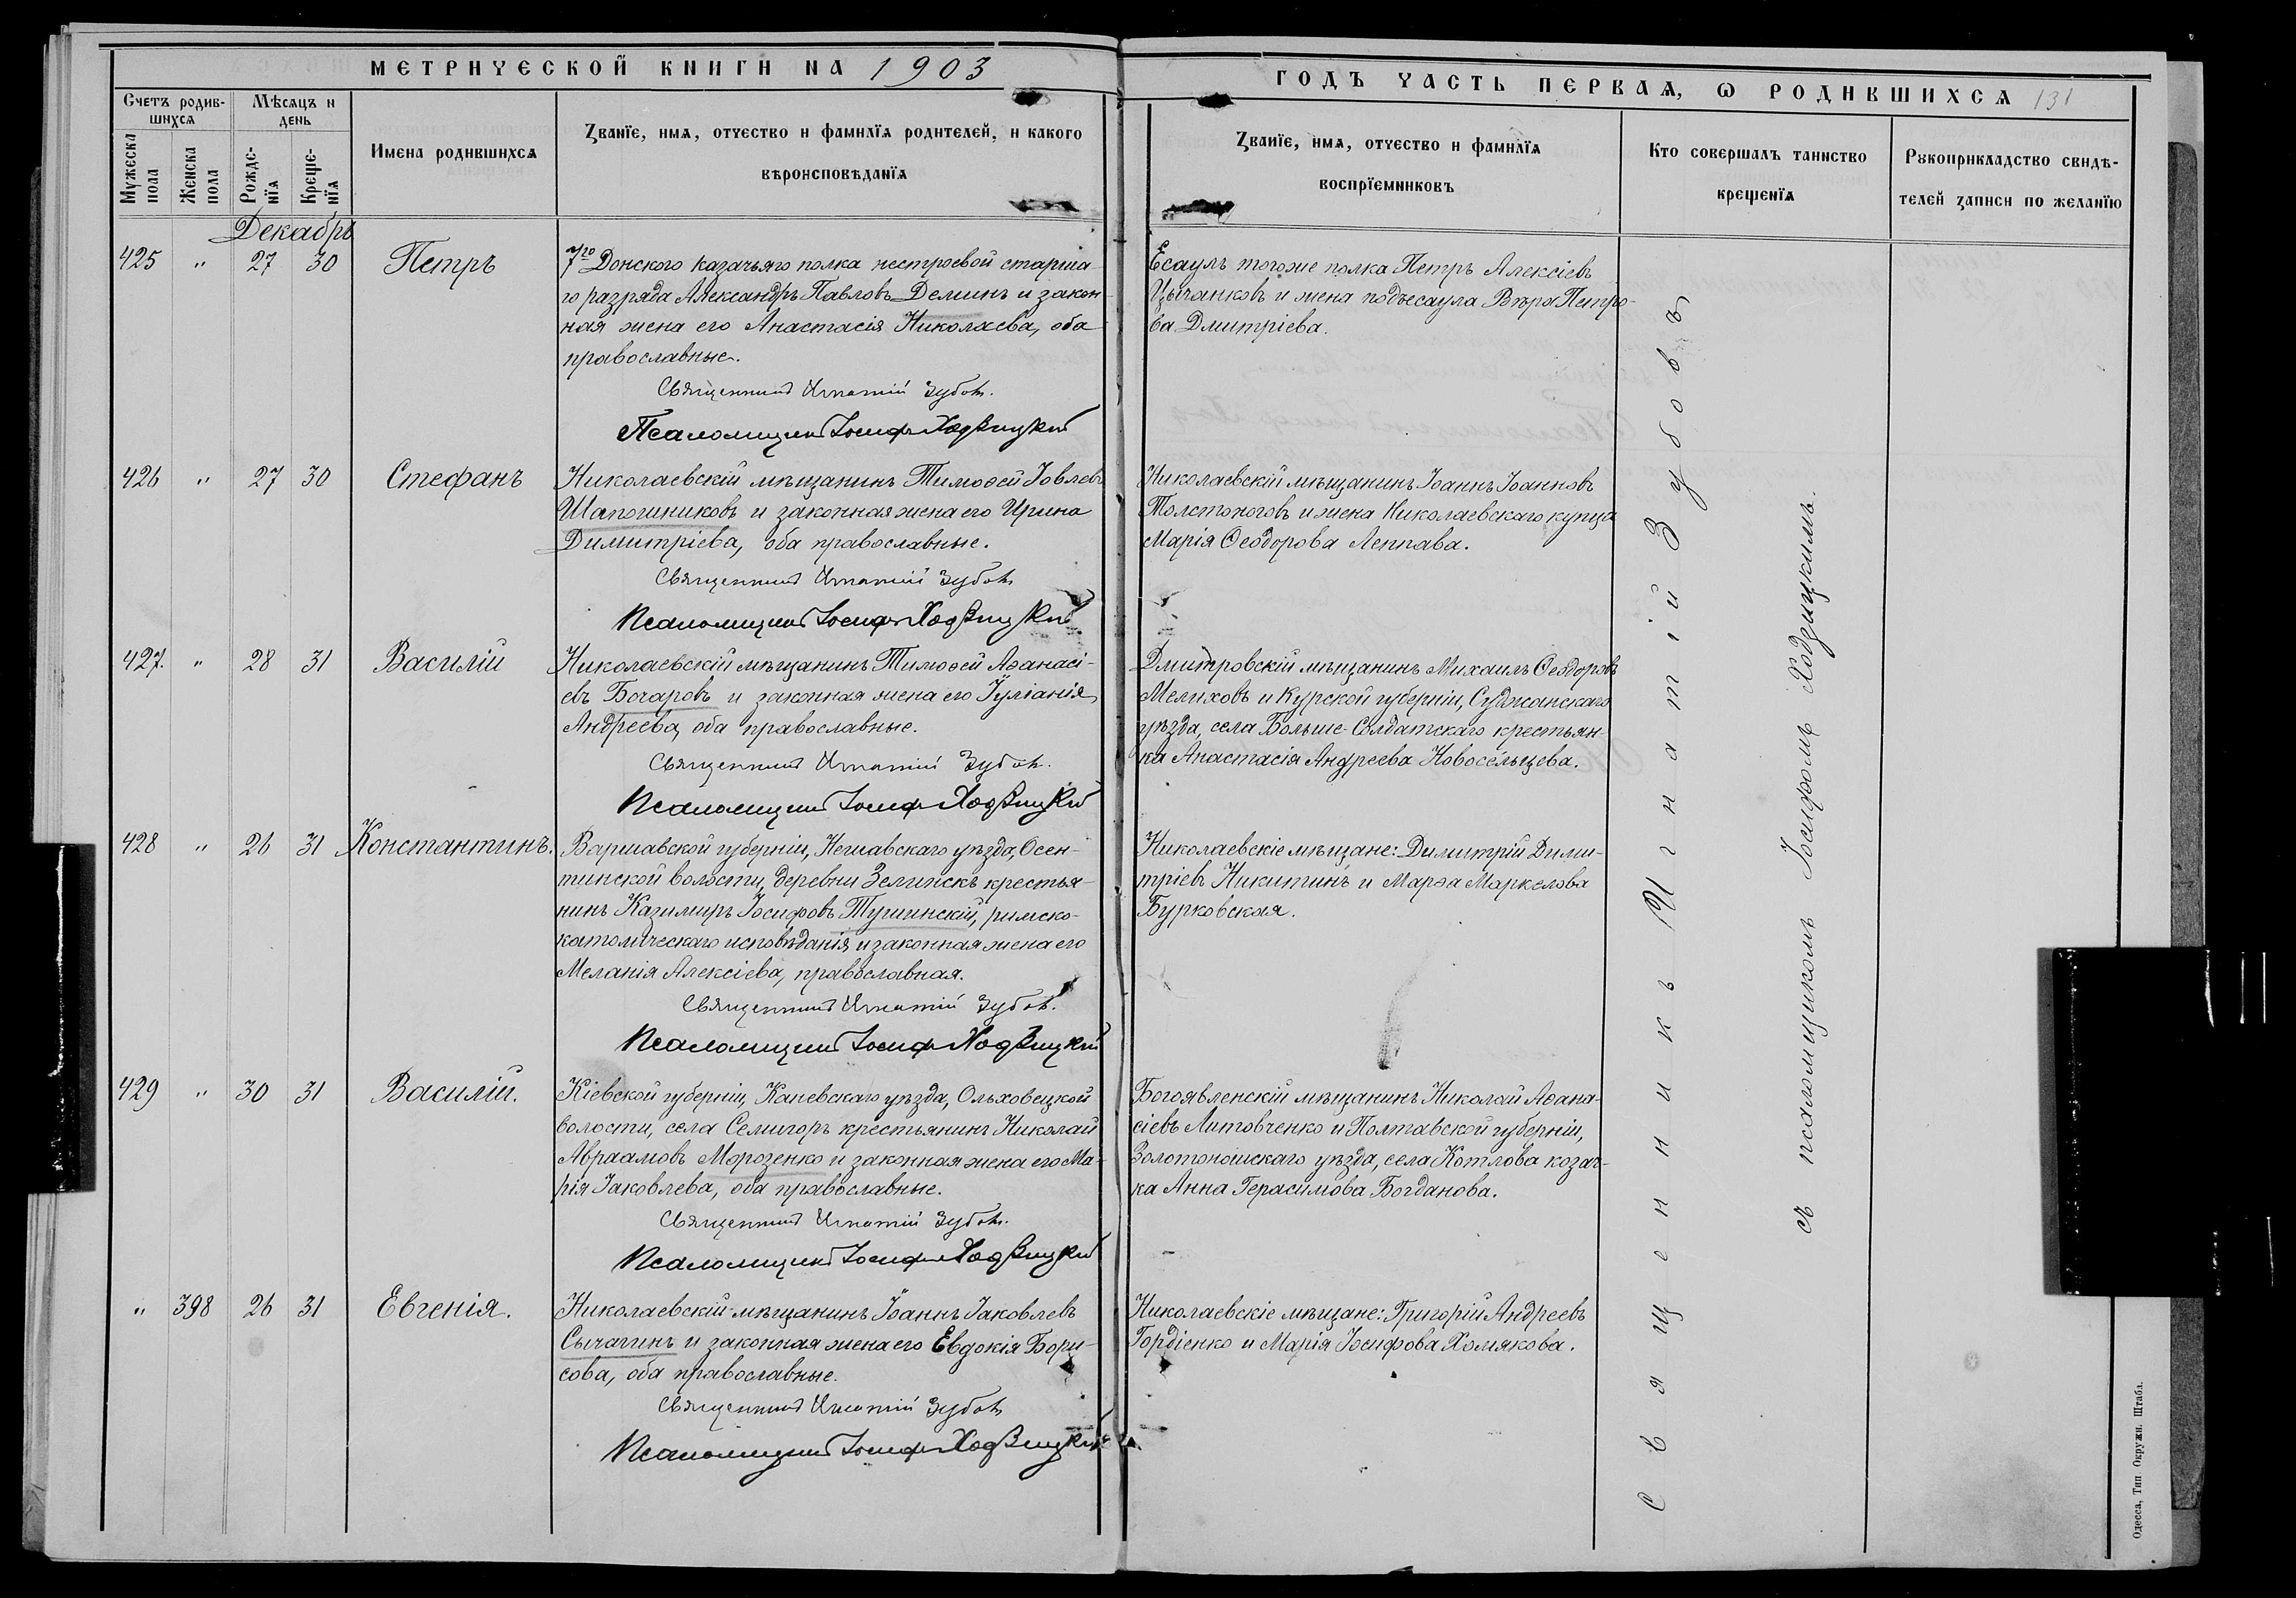 МЕТРИЧЕСКОЙ КНИГИ НА 1903
ГОДЪ ЧАСТЬ ПЕРВАѦ, Ѡ РОДИВШИХСѦ 131
Счетъ родив-
шихсѧ
Мѣсѧцъ и
день
Мꙋжеска
пола
Женска
пола
Рожде-
нїѧ
Креще-
нїѧ
Имена родившихсѧ
Званїе, имѧ, отчество и фамилїѧ родителей, и какого
вѣроисповѣданїѧ
Званїе, имѧ, отчество и фамилїѧ
воспрїемниковъ
Кто совершалъ таинство
крещенїѧ
Рꙋкоприкладство свидѣ-
телей записи по желанїю
Декабрь
425 " 27 30 Петръ
7го Донского казачьяго полка нестроевой старша-
го разряда Александръ Павловъ Деминъ и закон-
ная жена его Анастасія Николаева, оба
православные.
Священникъ Игнатій Зубовъ.
Псаломщикъ Іосифъ Ходзицкій
Есаулъ тогоже полка Петръ Алексіевъ
Цыганковъ и жена подъесаула Вѣра Петро-
ва Дмитріева.
426 " 27 30 Стефанъ
Николаевскій мѣщанинъ Тимоѳей Іовлевъ
Шапошниковъ и законная жена его Ирина
Димитріева, оба православные.
Священникъ Игнатій Зубовъ
Псаломщикъ Іосифъ Ходзицкій
Николаевскій мѣщанинъ Іоаннъ Іоанновъ
Толстоноговъ и жена Николаевскаго купца
Марія Ѳеодорова Леппава.
427. " 28 31 Василій
Николаевскій мѣщанинъ Тимоѳей Аѳанасі-
евъ Бочаровъ и законная жена его Іуліанія
Андреева, оба православные.
Священникъ Игнатій Зубовъ.
Псаломщикъ Іосифъ Ходзицкій
Дмитровскій мѣщанинъ Михаилъ Ѳеодоровъ
Мелиховъ и Курской губерніи, Суджанскаго
уѣзда, села Больше-Солдатскаго крестьян-
ка Анастасія Андреева Новосельцева.
428 " 26 31 Константинъ.
Варшавской губерніи, Нешавскаго уѣзда, Осен-
тинской волости, деревни Зелинскъ крестья-
нинъ Казимиръ Іосифовъ Тушинскій, римско-
католическаго исповѣданія и законная жена его
Меланія Алексіева, православная.
Священникъ Игнатій Зубовъ.
Псаломщикъ Іосифъ Ходзицкій
Николаевскіе мѣщане: Димитрій Дими-
тріевъ Никитинъ и Марѳа Маркелова
Бурковская.
429 " 30 31 Василій.
Кіевской губерніи, Каневскаго уѣзда, Ольховецкой
волости, села Семигоръ крестьянинъ Николай
Авраамовъ Морозенко и законная жена его Ма-
рія Іаковлева, оба православные.
Священникъ Игнатій Зубовъ.
Псаломщикъ Іосифъ Ходзицкій
Богоявленскій мѣщанинъ Николай Аѳана-
сіевъ Литовченко и Полтавской губерніи,
Золотоношскаго уѣзда, села Котлова козач-
ка Анна Герасимова Богданова.
" 398 26 31 Евгенія.
Николаевскій мѣщанинъ Іоаннъ Іаковлевъ
Сычагинъ и законная жена его Евдокія Бори-
сова, оба православные.
Священникъ Игнатій Зубовъ
Псаломщикъ Іосифъ Ходзицкій
Николаевскіе мѣщане: Григорій Андреевъ
Гордіенко и Марія Іосифова Хомякова.
Священникъ Игнатій Зубовъ
съ псаломщикомъ Іосифомъ Ходзицкимъ.
Одесса, Тип Окружн. Штаба.